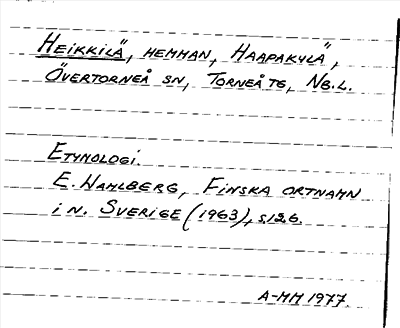 HEIKKILÄ, HEMMAN, HAAPAKYLÄ,
ÖVERTORNEÅ SN, TORNEÅ TG, NB.L.
ETYMOLOGI.
E. WAHLBERG, FINSKA ORTNAMN
I N. SVERIGE (1963), S.126.
A-MH 1977.